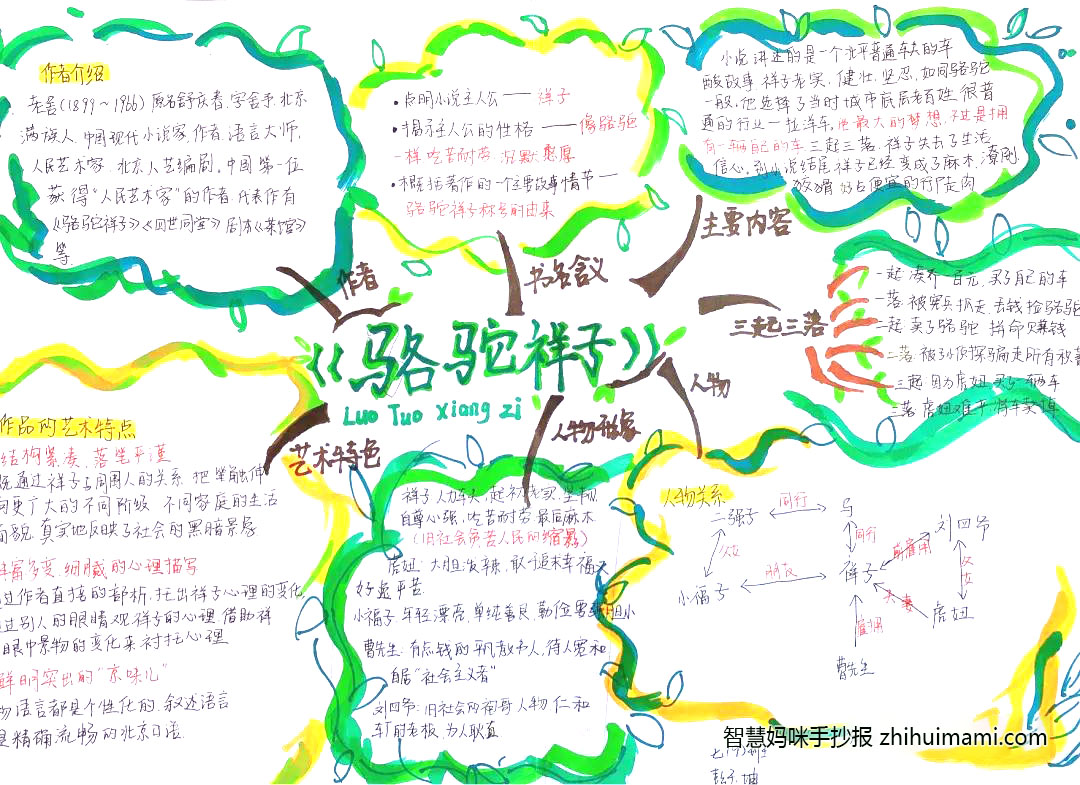 作者介绍
老舍(1899～1966)原名舒庆春,字舍予,北京
满族人.中国现代小说家,作者.语言大师,
人民艺术家.北京人艺编剧,中国第一位
获得"人民艺术家"的作者.代表作有
《骆驼祥子》《四世同堂》剧本《茶馆》
等.
作者
•点明小说主人公——祥子
•揭示主人公的性格——像骆驼
一样吃苦耐劳.沉默憨厚
•概括著作的一个主要故事情节—
骆驼祥子称号的由来
书名含义
小说讲述的是一个北平普通车夫的车
酸故事.祥子老实,健壮,坚忍,如同骆驼
一般,他选择了当时城市底层老百姓很普
通的行业一拉洋车,他最大的梦想,不过是拥
有一辆自己的车.三起三落.祥子失去了生活
信心,到小说结尾祥子已经变成了麻木,潦倒.
狡猾 好占便宜的行尸走肉
主要内容
三起三落
一起:凑齐一百元,买了自己的车
一落:被宪兵抓走,丢钱捡骆驼
二起:卖了骆驼 拼命赚钱
二落:被孙侦探骗走所有
三起:因为虎妞买了一辆车
三落:虎妞难产,将车卖掉
《骆驼祥子》
Luo Tuo xiang zi
艺术特色
作品的艺术特点
结构紧凑,落笔严谨
通过祥子与周围人的关系,把笔触伸
向更广大的不同阶级 不同家庭的生活
面貌,真实地反映了社会的黑暗景象.
丰富多变.细腻的心理描写
过作者直接的剖析,托出祥子心理的变化
过别人的眼睛观祥子的心理.借助祥
眼中景物的变化来衬托心理
鲜明突出的"京味儿"
物语言都是个性化的.叙述语言
是精确流畅的北京口语.
人物形象
祥子:人力车夫,起初老实,坚韧
自尊心强,吃苦耐劳.最后麻木
(旧社会劳苦人民的缩影)
虎妞:大胆泼辣,敢于追求幸福又
好逸恶苦.
小福子:年轻漂亮,单纯善良,勤俭,胆小
曹先生:有点钱的平凡教书人,待人宽和
自居"社会主义者"
刘四爷:旧社会的袍哥人物 仁和
车厂的老板,为人耿直
人物
人物关系
二强子
同行
马
父女
同行
刘四爷
前雇用
小福子
朋友
祥子
父女
夫妻
虎妞
雇用
曹先生
智慧妈咪手抄报 zhihuimami.com